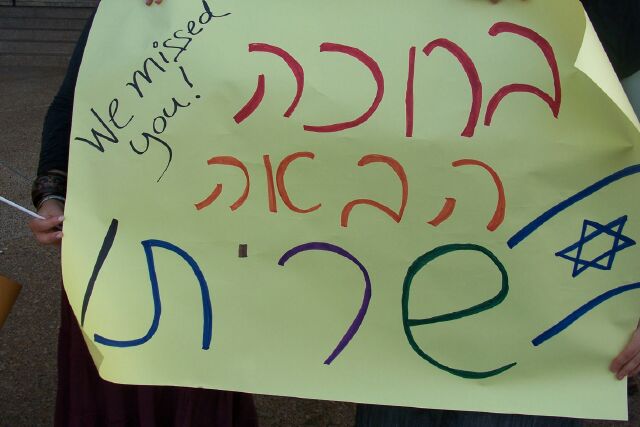 We missed
you!
ברוכה
הבאה
שרית!